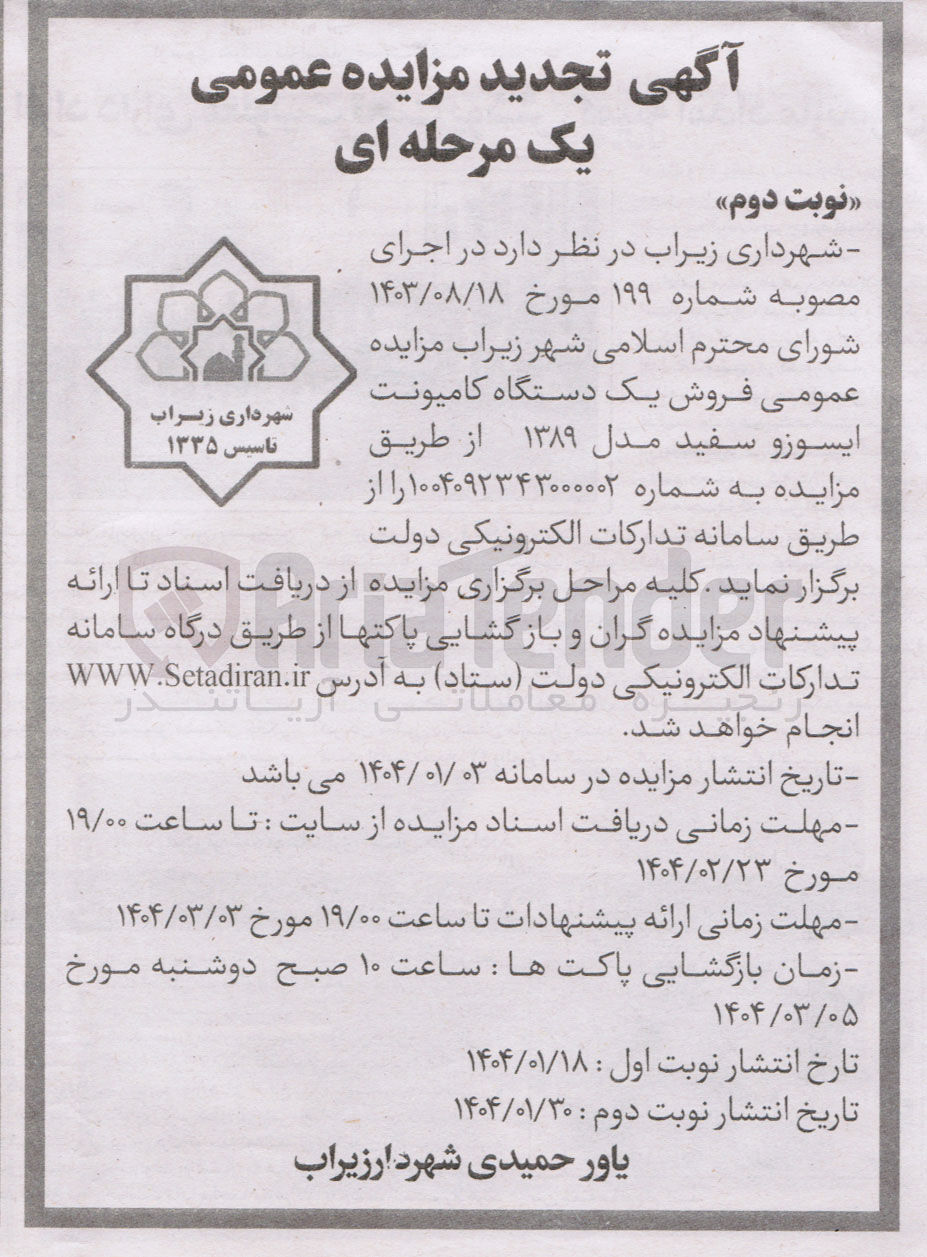 آگهی تجدید مزایده عمومی
یک مرحله ای
«نوبت دوم»
-شهرداری زیراب در نظر دارد در اجرای
مصوبه شماره ۱۹۹ مورخ ۱۴۰۳/۰۸/۱۸
شورای محترم اسلامی شهر زیراب مزایده
عمومی فروش یک دستگاه کامیونت
ایسوزو سفید مدل ۱۳۸۹ از طریق
مزایده به شماره ۱۰۰۴۰۹۲۳۴۳۰۰۰۰۰۲را از
طریق سامانه تدارکات الکترونیکی دولت
برگزار نماید .کلیه مراحل برگزاری مزایده از دریافت اسناد تا ارائه
پیشنهاد مزایده گران و بازگشایی پاکتها از طریق درگاه سامانه
تدارکات الکترونیکی دولت (ستاد) به آدرس WWW.Setadiran.ir
انجام خواهد شد.
-تاریخ انتشار مزایده در سامانه ۱۴۰۴/۰۱/۰۳ می باشد
-مهلت زمانی دریافت اسناد مزایده از سایت : تا ساعت ۱۹/۰۰
مورخ ۱۴۰۴/۰۲/۲۳
-مهلت زمانی ارائه پیشنهادات تا ساعت ۱۹/۰۰ مورخ ۱۴۰۴/۰۳/۰۳
-زمان بازگشایی پاکت ها : ساعت ۱۰ صبح دوشنبه مورخ
۱۴۰۴/۰۳/۰۵
تارخ انتشار نوبت اول : ۱۴۰۴/۰۱/۱۸
تاریخ انتشار نوبت دوم : ۱۴۰۴/۰۱/۳۰
یاور حمیدی شهردارزیراب
شهرداری زیراب
تاسیس ۱۳۳۵
AriaTender
زنجیره معاملاتی آریاتندر